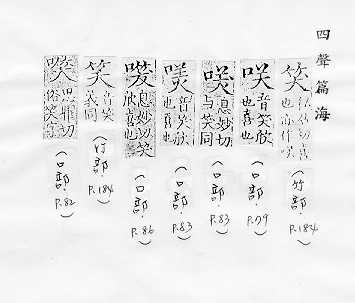 四聲篇海
笑 私妙切喜也亦作咲
(竹部. P.184)
咲 音笑欣也喜也
(口部. P.79)
咲 息妙切与笑同
(口部. P.83)
音笑欣也喜也
(口部. P.83)
息妙切笑欣喜也
(口部. P.86)
笑 音笑義同
(竹部. P.184)
思罪切俗笑字
(口部. P.82)